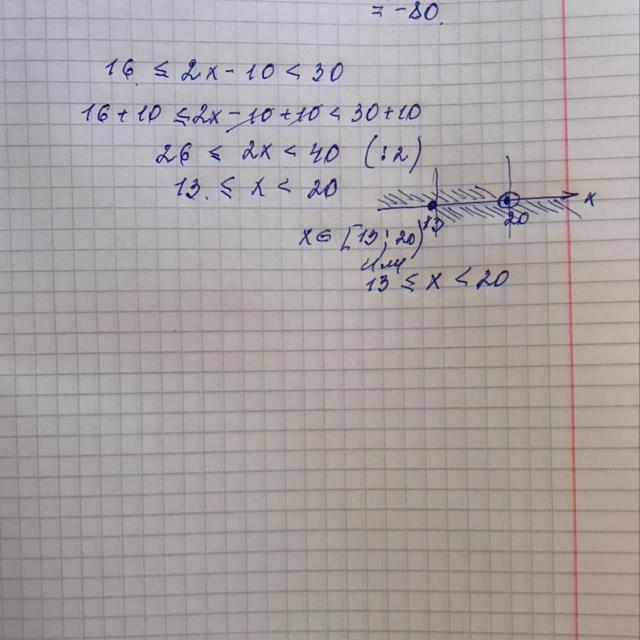 = -80.
16 ≤ 2x - 10 < 30
16 + 10 ≤ 2x - 10 + 10 < 30 + 10
26 ≤ 2x < 40 (:2)
13. ≤ x < 20
x
13 20
x ∈ [13; 20)
или
13 ≤ x < 20